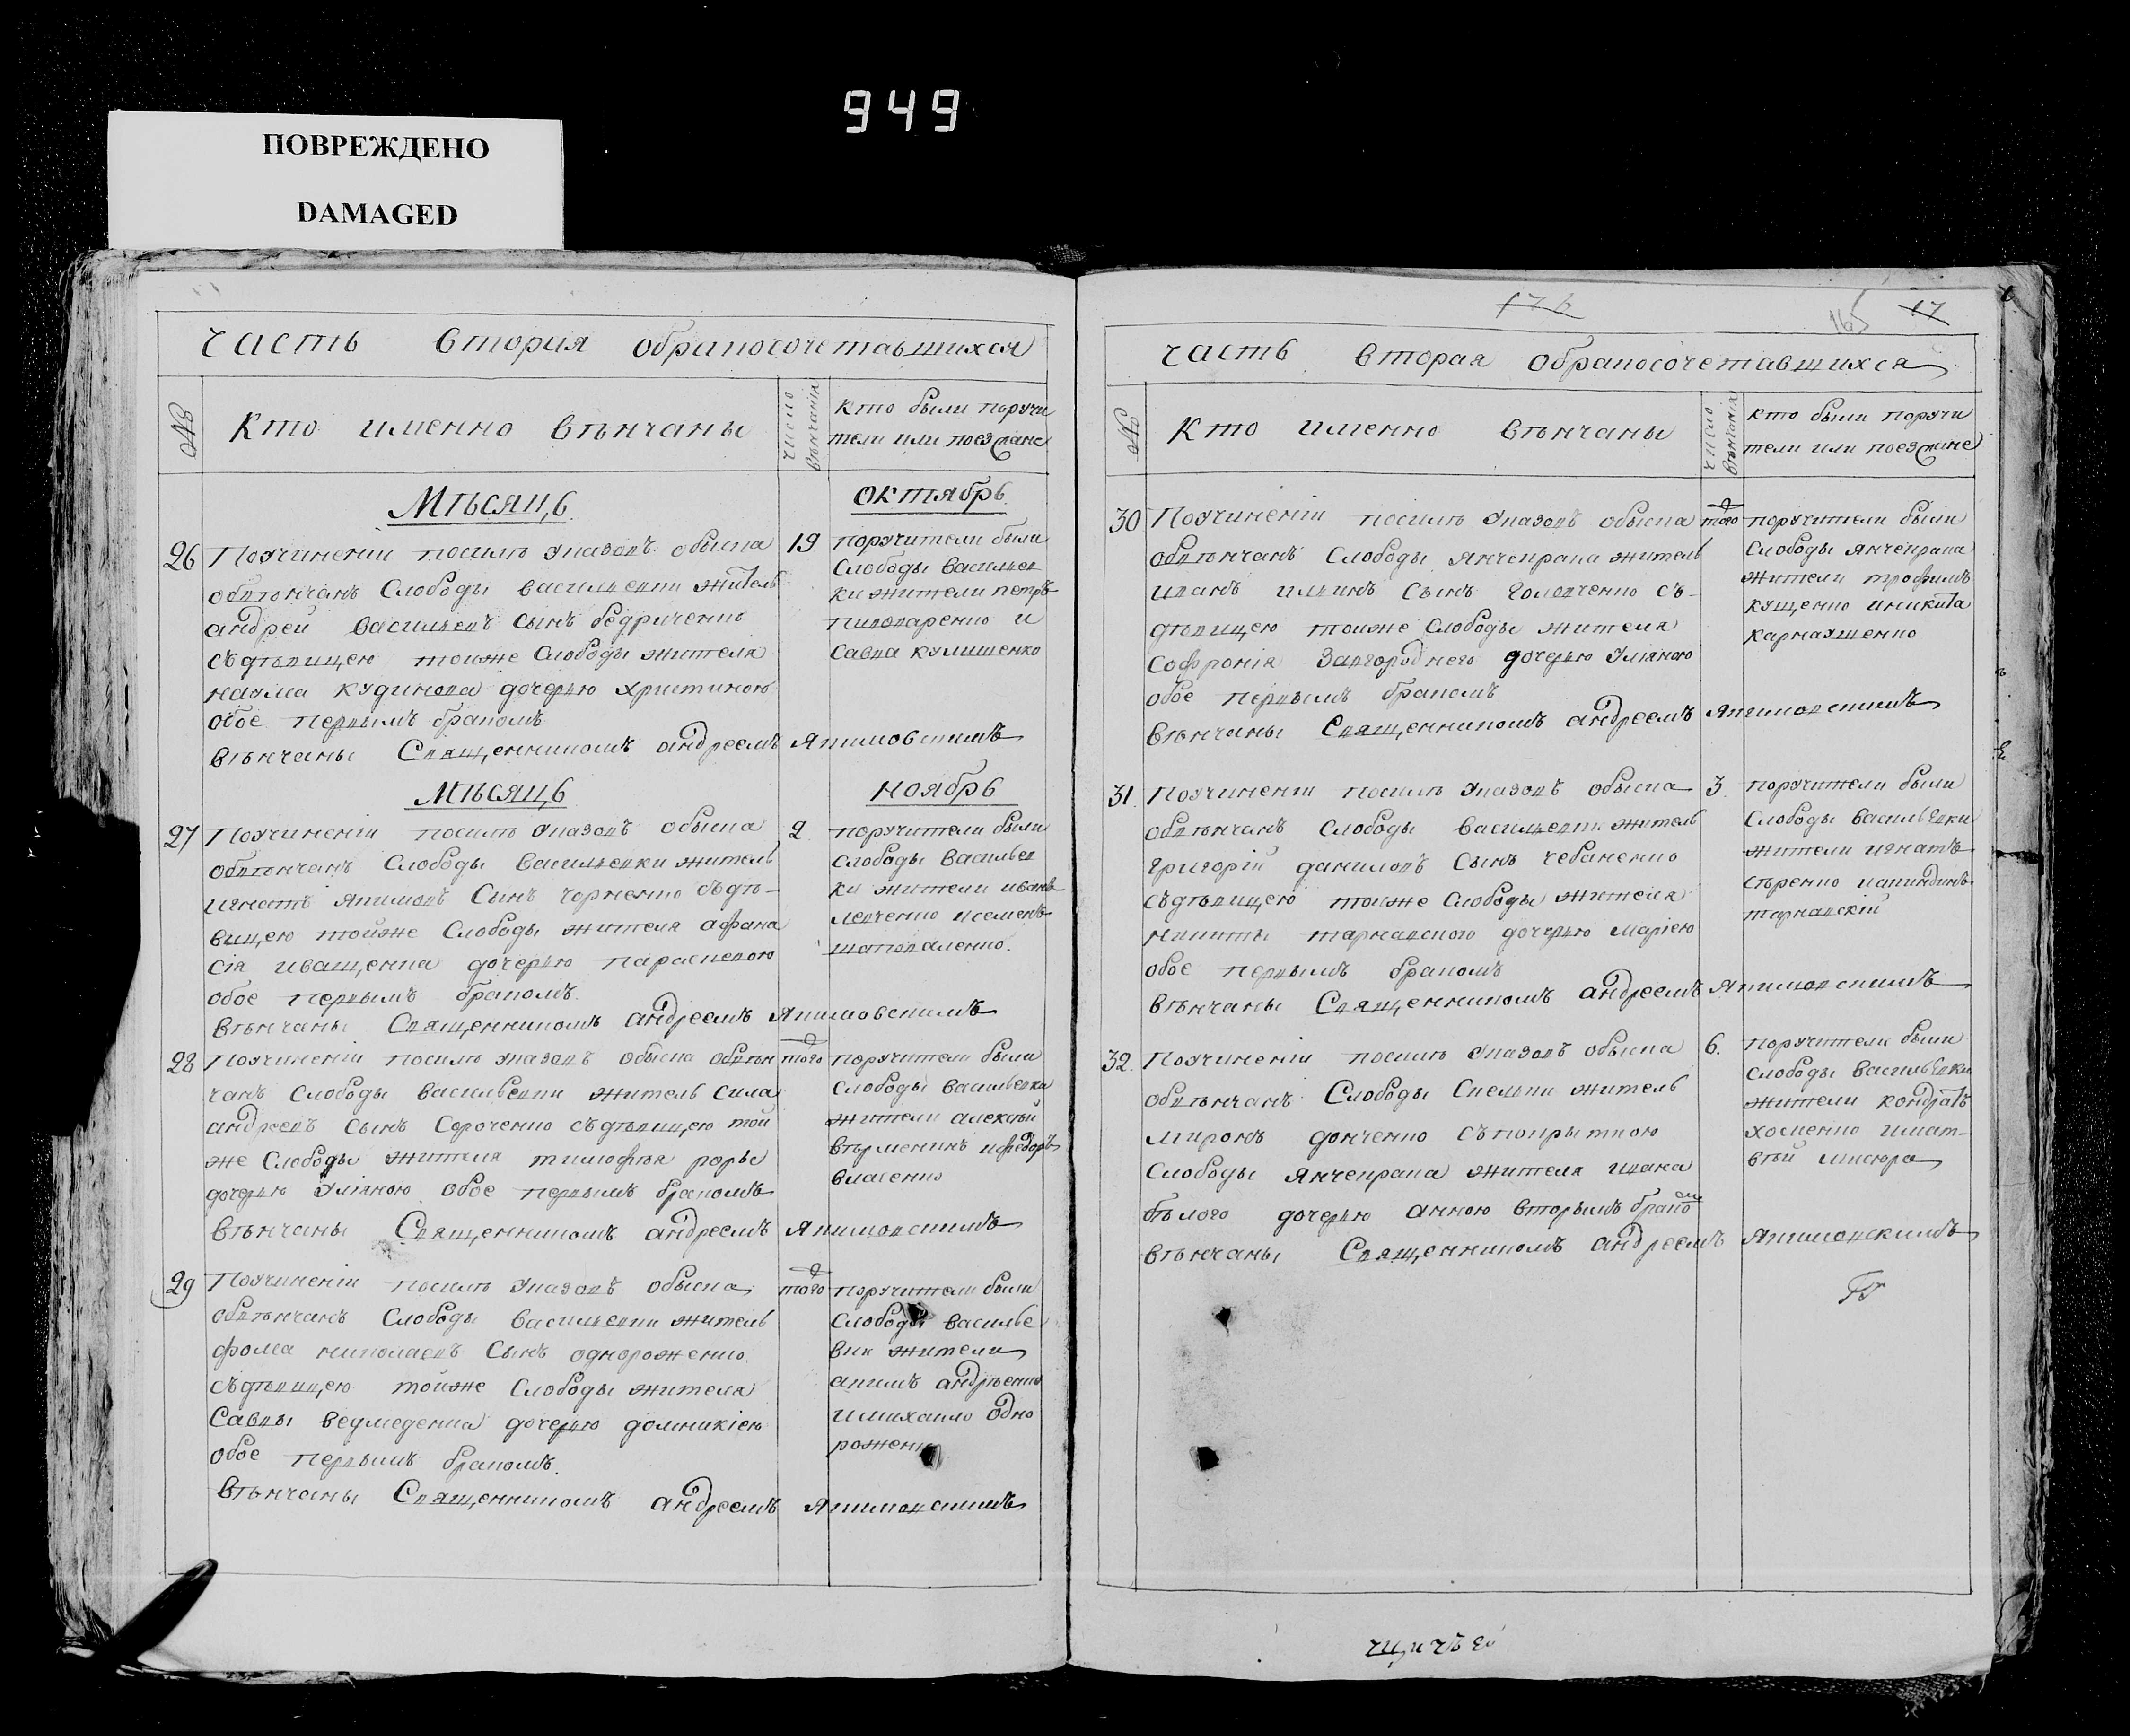 949
ПОВРЕЖДЕНО
DAMAGED
часть вторая обракосочетавшихся
№
Кто именно вѣнчаны
число вѣнчанія
кто были поручи
тели или поезжане
Мѣсяцъ
октябрь
26 Поучиненіи посилѣ указовъ обыска
обвѣнчанъ Слободы васильевки житель
андрей васильевъ сынъ бедриченко
съдѣвицею тойже Слободы жителя
наума кудинова дочерью христиною
обое первымъ бракомъ
вѣнчаны Священникомъ андреемъ Якимовскимъ
19
поручители были
Слободы васильев
ки жители петръ
пивоваренко и
Савва кулишенко
Мѣсяцъ
ноябрь
27 Поучиненіи посилѣ указовъ обыска
обвѣнчанъ Слободы васильевки житель
игнатъ якимовъ Сынъ чорненко съдѣ-
вицею тойже Слободы жителя афана
сія иващенка дочерью параскевою
обое первымъ бракомъ
вѣнчаны Священникомъ андреемъ Якимовскимъ
2
поручители были
слободы васильев
ки жители иванъ
левченко исеменъ
шаповаленко.
28 Поучиненіи посилѣ указовъ обыска обвѣн
чанъ Слободы васильевки житель сила
андреевъ сынъ Сороченко съдѣвицею той
же Слободы жителя тимофѣя
дочерью Уляною обое первымъ бракомъ
вѣнчаны Священникомъ андреемъ Якимовскимъ
того
поручители были
Слободы васильевки
жители алексѣй
ифедоръ
власенко
29 Поучиненіи посилѣ указовъ обыска
обвѣнчанъ Слободы васильевки житель
фома николаевъ Сынъ однороженко
съдѣвицею тойже Слободы жителя
Саввы ведмеденка дочерью домникіею
обое первымъ бракомъ.
вѣнчаны Священникомъ андреемъ Якимовскимъ
того
поручители были
Слободы василье
вки жители
акимъ андрѣенко
имихаило одно
роженко
17
165
часть вторая обракосочетавшихся
№
Кто именно вѣнчаны
число вѣнчанія
кто были поручи
тели или поезжане
30 Поучиненіи посилѣ указовъ обыска
обвѣнчанъ Слободы янчекрака житель
иванъ сынъ головченко съ-
дѣвицею тойже слободы жителя
Софронія Завгороднего дочерью Уляною
обое первымъ бракомъ
вѣнчаны Священникомъ андреемъ Якимовскимъ
того
поручители были
Слободы янчекрака
жители трофимъ
кущенко иникита
карнаушенко
31. Поучиненіи посилѣ указовъ обыска
обвѣнчанъ слободы васильевки житель
григорій даниловъ Сынъ чебаненко
съдѣвицею тойже Слободы жителя
никиты тарнавского дочерью маріею
обое первымъ бракомъ
вѣнчаны Священникомъ андреемъ Якимовскимъ
3
поручители были
Слободы васильевки
жители игнатъ
тарнавскій
32. Поучиненіи посилѣ указовъ обыска
обвѣнчанъ Слободы Скельки житель
миронъ донченко съпокрыткою
Слободы янчекрака жителя ивана
бѣлого дочерью анною вторымъ бракомъ
вѣнчаны Священникомъ андреемъ Якимовскимъ
6.
поручители были
слободы васильевки
жители кондратъ
хоменко имат-
вѣй мисюра